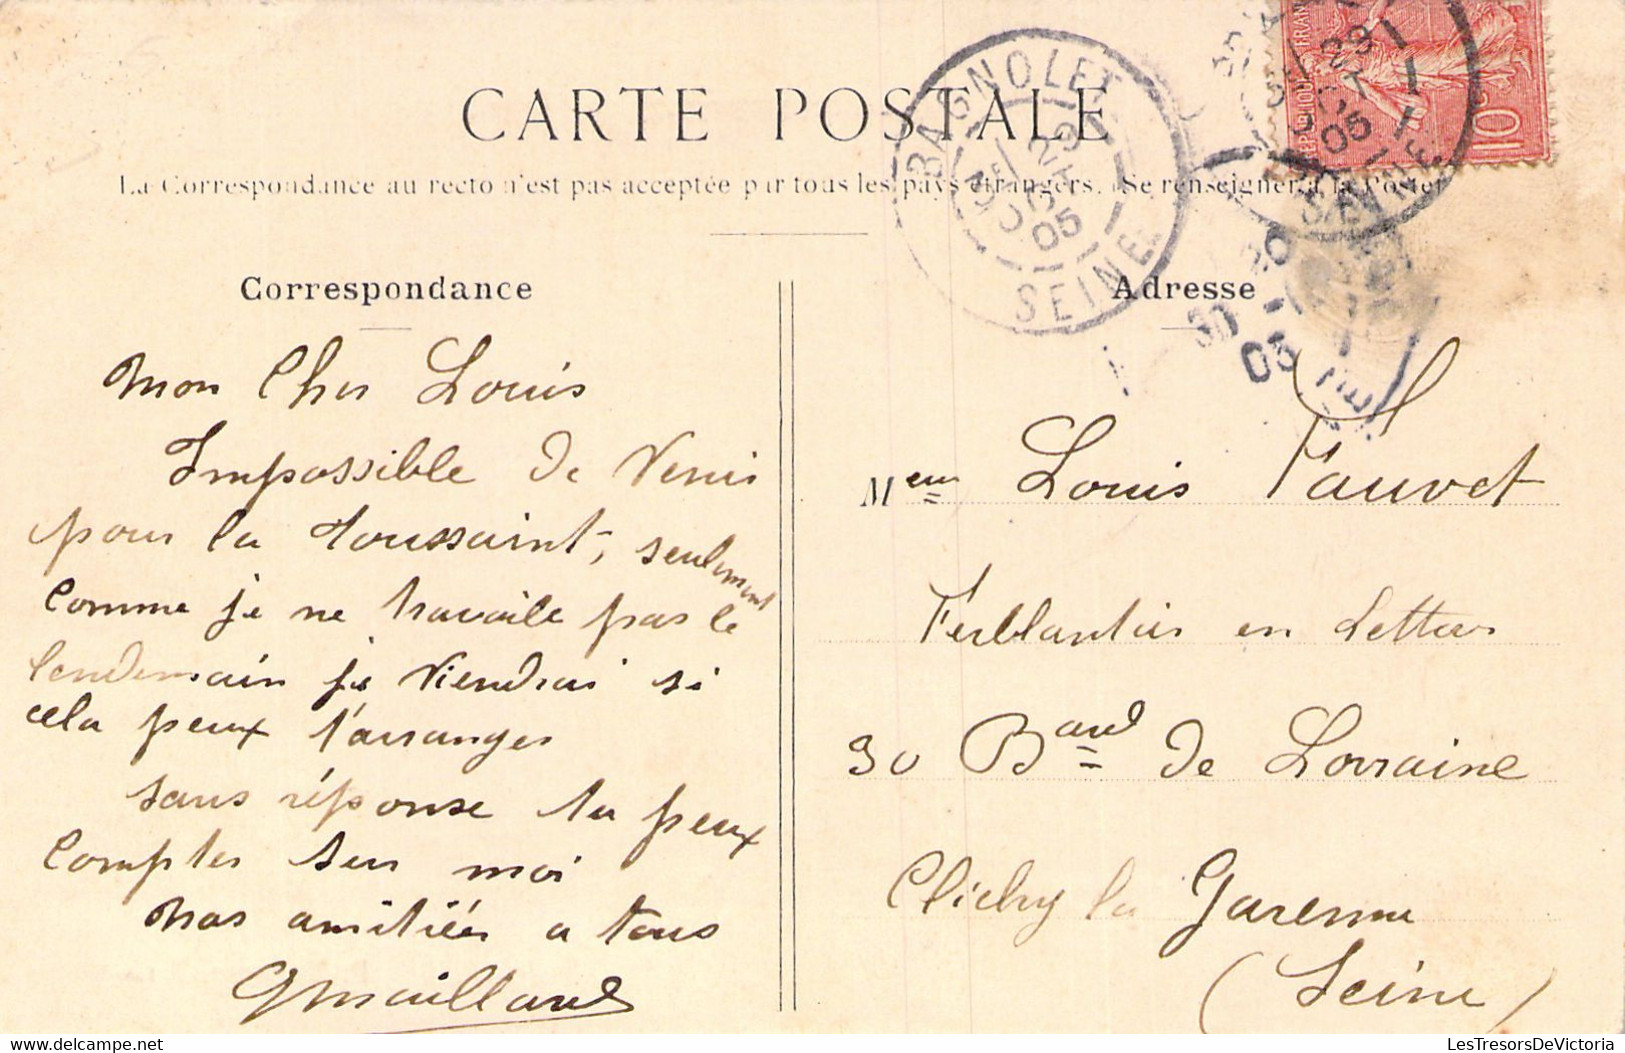 CARTE POSTALE
La Correspondance au recto n'est pas acceptée par tous les pays étrangers. (Se renseigner à la Poste)
BAGNOLET
29
OCT
05
SEINE
REPUBLIQUE FRAN
10c
29
05
SEINE
30
05
Correspondance
Mon Cher Louis
Impossible de Venir
pour la Toussaint, seulement
comme je ne travaile pas le
lendemain je viendrai si
cela peux t'arranger
sans réponse tu peux
Compter sur moi
nos amitiés a tous
GMaillard
Adresse
Meur Louis Fauvet
Ferblantier en lettres
30 Bard de Lorraine
Clichy la Garenne
(Seine)
LesTresorsDeVictoria
delcampe.net